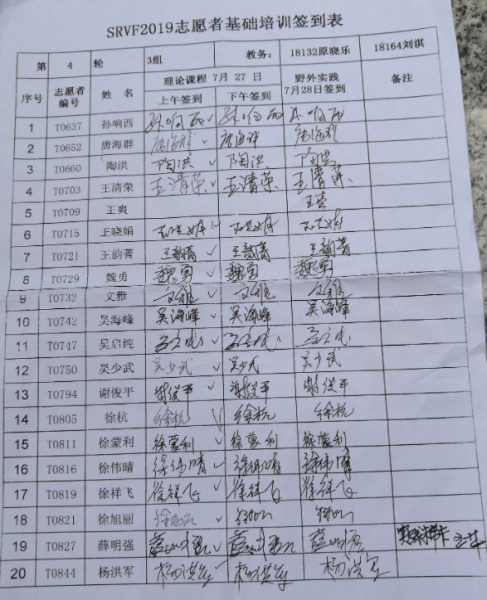 SRVF2019志愿者基础培训签到表
第 4 轮 3组 教务: 18132原晓乐 18164刘淇
序号 志愿者编号 姓 名 理论课程 7月 27 日 野外实践 7月28日签到 备注
上午签到 下午签到
1 T0637 孙响西 孙响西 孙响西 孙响西
2 T0652 唐海群 唐海群 唐海群 唐海群
3 T0660 陶洪 陶洪 陶洪 陶洪
4 T0703 王清荣 王清荣 王清荣 王清荣
5 T0709 王爽 王爽
6 T0715 王晓娟
7 T0721 王韵菁 王韵菁 王韵菁 王韵菁
8 T0729 魏勇 魏勇 魏勇 魏勇
9 T0732 文雅 文雅 文雅 文雅
10 T0742 吴海峰 吴海峰 吴海峰 吴海峰
11 T0747 吴启纯
12 T0750 吴少武 吴少武 吴少武 吴少武
13 T0794 谢俊平 谢俊平 谢俊平 谢俊平
14 T0805 徐杭 徐杭 徐杭 徐杭
15 T0811 徐蒙利 徐蒙利 徐蒙利 徐蒙利
16 T0816 徐伟晴 徐伟晴 徐伟晴 徐伟晴
17 T0819 徐祥飞 徐祥飞 徐祥飞 徐祥飞
18 T0821 徐旭丽
19 T0827 薛明强
20 T0844 杨洪军 杨洪军 杨洪军 杨洪军